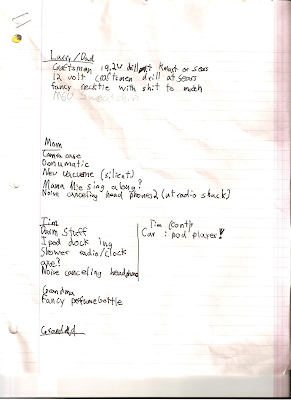 Larry/Dad
Craftsman 19.2V drill at Kmart or sears
12 volt craftsmen drill at sears
fancy necktie with shit to match
Mom
Camra case
Vacuume (silient)
Mama Mie sing along?
Noise canceling head phones2 (at radio shack)
Tim
Dorm Stuff
Ipod dock ing
Shower radio/clock
axe?
Noise canceling headphone
Tim (cont)
Car ipod player!
Grandma
Fancy perfume bottle
Grandad